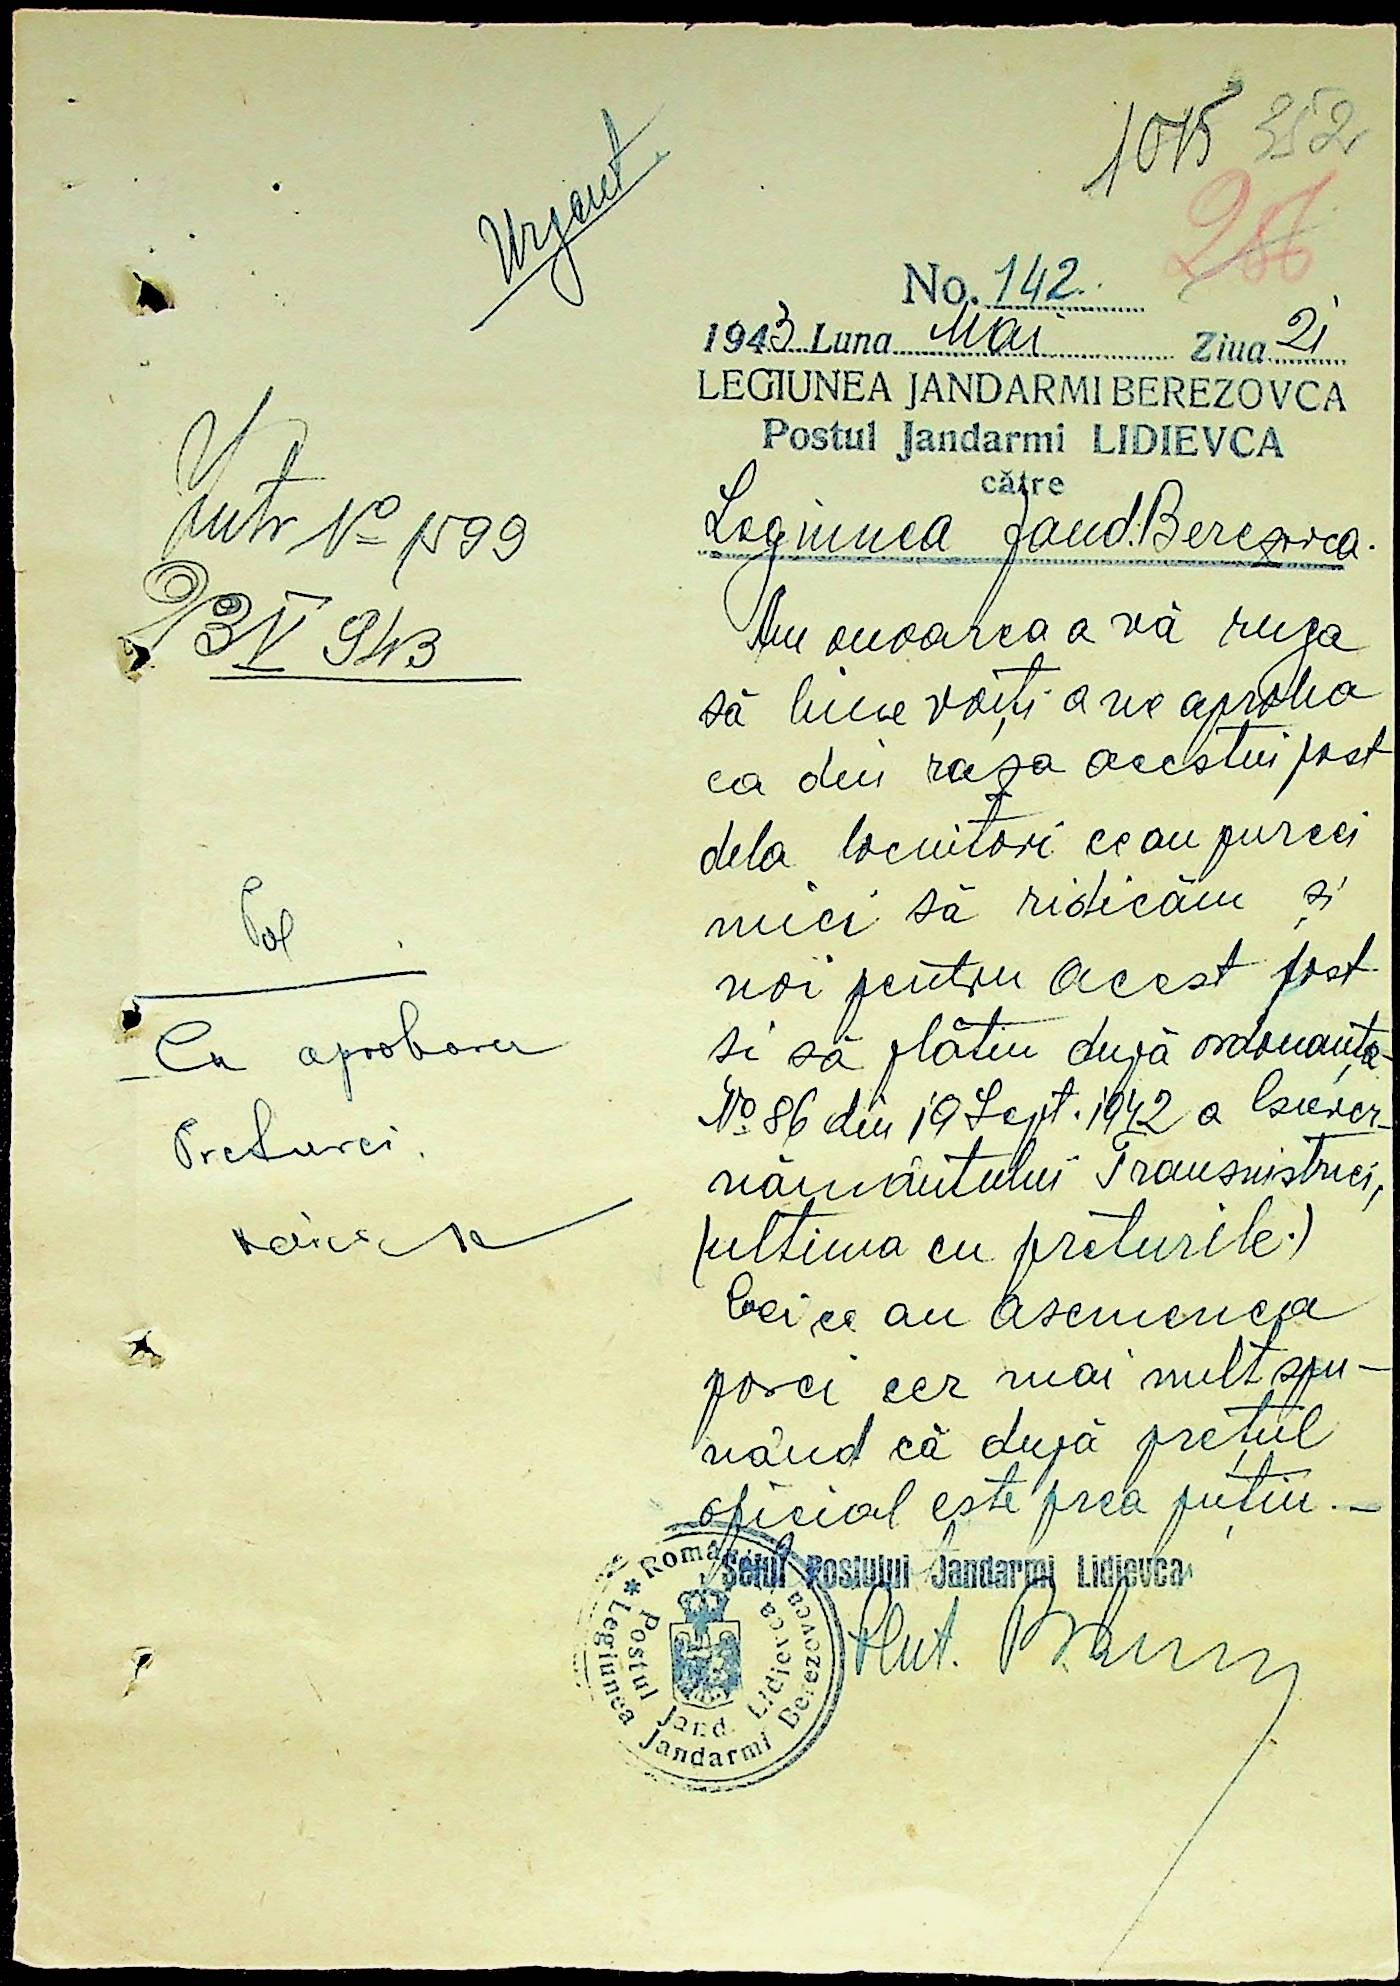 1075 352
Urgent
286
No. 142.
1943 Luna Mai Ziua 21
LEGIUNEA JANDARMI BEREZOVCA
Postul Jandarmi LIDIEVCA
către
Legiunea Jand. Berezovca.
Intr No 1599
23 V 943
Am onoarea a vă ruga
să bine voiți a ne aproba
ca din raza acestui post
dela locuitori ce au purcei
mici să ridicăm și
noi pentru acest post
si să plătim după ordonanța
No 86 din 19 Sept. 1942 a Guver-
nământului Transnistriei,
(ultima cu prețurile.)
Cei ce au asemenea
porci cer mai mult spu-
nând că după prețul
oficial este prea puțin. —
Pol
Cu aprobarea
Preturei.
Șeful Postului Jandarmi Lidievca
Plut.
România
* Legiunea Jandarmi Berezovca
Postul Jand. Lidievca